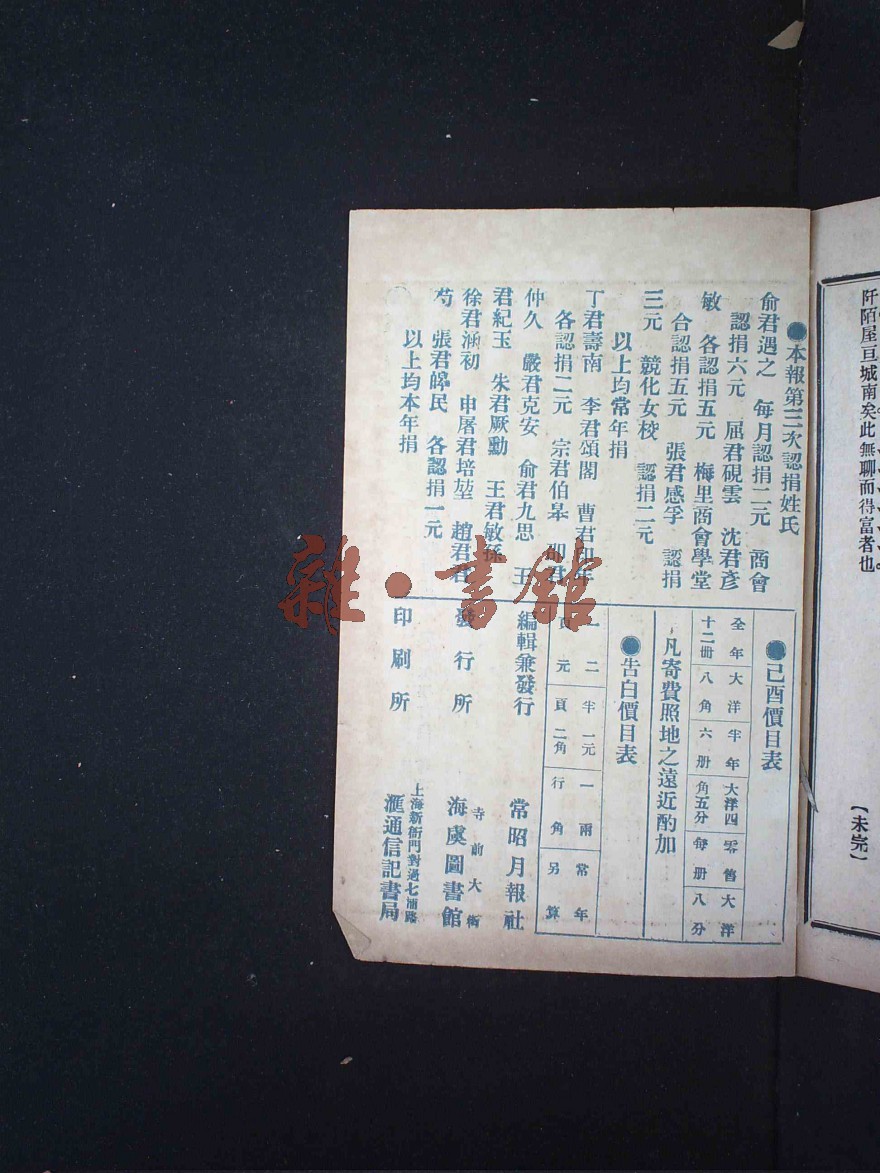 阡陌屋亘城南矣此無聊而得富者也
【未完】
●本報第三次認捐姓氏
俞君遇之　每月認捐二元　商會
認捐六元　屈君硯雲　沈君彥
敏　各認捐五元　梅里商會學堂
合認捐五元　張君感孚　認捐
三元　競化女校　認捐二元
以上均常年捐
丁君壽南　李君頌閣　曹君
各認捐二元　宗君伯皋　邵君
仲久　嚴君克安　俞君九思　王
君紀玉　朱君厥勳　王君敏孫
徐君涵初　申屠君培堃　趙君君
芍　張君皞民　各認捐一元
以上均本年捐
●己酉價目表
全年大洋半年大洋四零售大洋
十二冊八角六冊角五分每冊八分
凡寄費照地之遠近酌加
●告白價目表
一二半一元一兩常年
頁元頁二角行角另算
編輯兼發行　常昭月報社
發行所　寺前大街
海虞圖書館
印刷所　上海新衙門對過七浦路
滙通信記書局
雜·書館